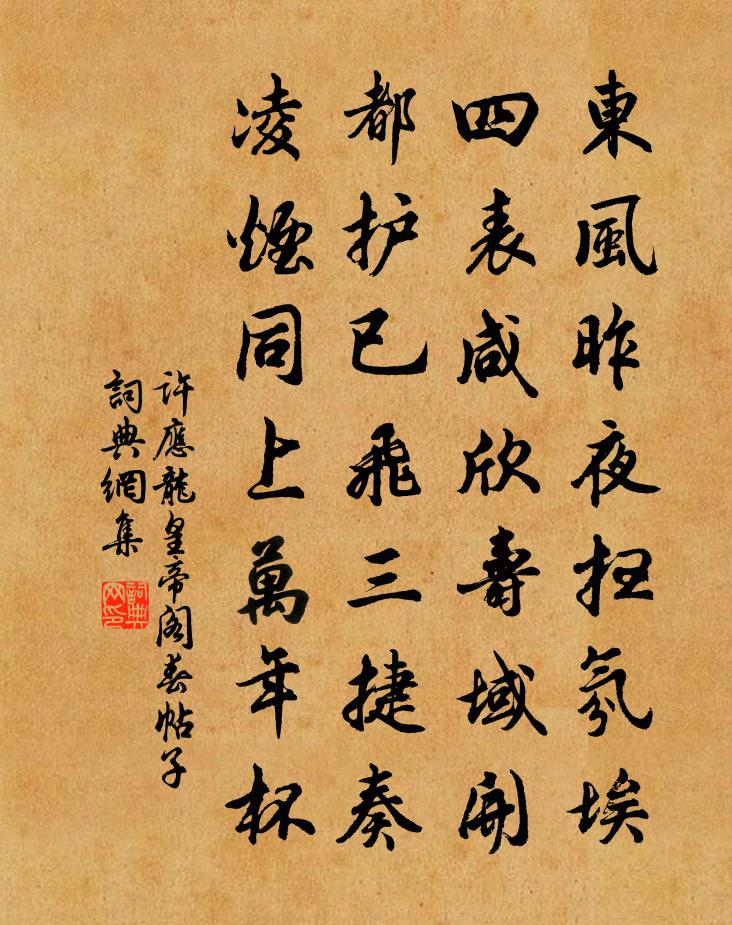 東風昨夜扫氛埃
四表咸欣壽域開
都护已飛三捷奏
凌煙同上萬年杯
許應龍皇帝閣春帖子
詞典網集
詞典网印